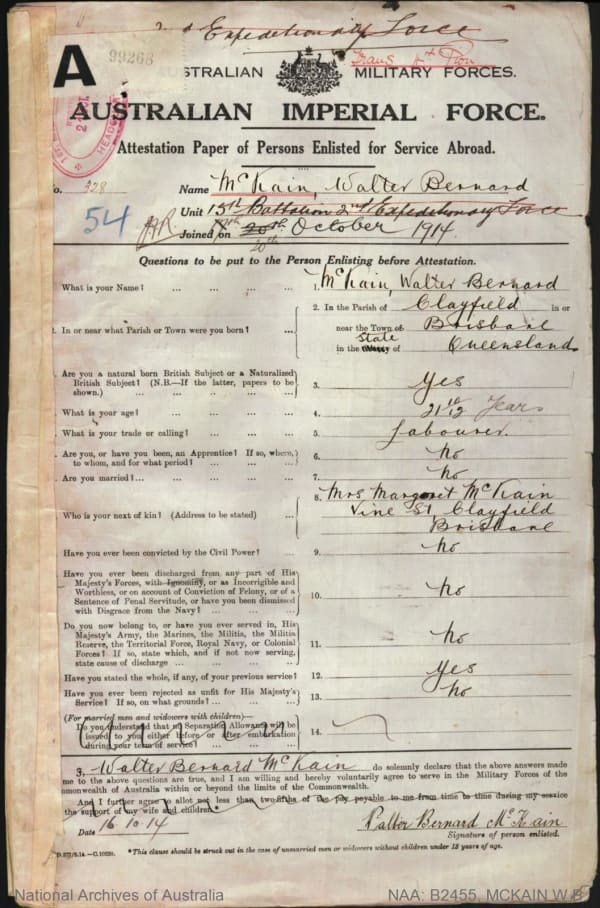 Expeditionary Force
A
99268
Trans 4th Pion
AUSTRALIAN MILITARY FORCES.
AUSTRALIAN IMPERIAL FORCE.
Attestation Paper of Persons Enlisted for Service Abroad.
No. 328 Name McKain, Walter Bernard
54 Unit 15th Battalion 2nd Expeditionary Force
Joined on 20th October 1914.
20th
Questions to be put to the Person Enlisting before Attestation.
What is your Name? ... ... ... ... 1. McKain, Walter Bernard
In or near what Parish or Town were you born? ... 2. In the Parish of Clayfield in or
near the Town of Brisbane
State
in the County of Queensland.
Are you a natural born British Subject or a Naturalized
British Subject? (N.B.—If the latter, papers to be
shown.) ... ... ... ... ... 3. Yes
What is your age? ... ... ... ... 4. 21 Years
What is your trade or calling? ... ... ... 5. Labourer.
Are you, or have you been, an Apprentice? If so, where,
to whom, and for what period? ... ... ... 6. No
Are you married? ... ... ... ... ... 7. No
Who is your next of kin? (Address to be stated) ... 8. Mrs Margaret McKain
Vine St, Clayfield
Brisbane
Have you ever been convicted by the Civil Power? ... 9. No
Have you ever been discharged from any part of His
Majesty's Forces, with Ignominy, or as Incorrigible and
Worthless, or on account of Conviction of Felony, or of a
Sentence of Penal Servitude, or have you been dismissed
with Disgrace from the Navy? ... ... ... 10. No
Do you now belong to, or have you ever served in, His
Majesty's Army, the Marines, the Militia, the Militia
Reserve, the Territorial Force, Royal Navy, or Colonial
Forces? If so, state which, and if not now serving,
state cause of discharge ... ... ... ... 11. No
Have you stated the whole, if any, of your previous service? 12. Yes
Have you ever been rejected as unfit for His Majesty's
Service? If so, on what grounds? ... ... ... 13. No
(For married men and widowers with children)—
Do you understand that no Separation Allowance will be
issued to you either before or after embarkation
during your term of service? ... ... ... 14.
3. Walter Bernard McKain do solemnly declare that the above answers made
me to the above questions are true, and I am willing and hereby voluntarily agree to serve in the Military Forces of the
mmonwealth of Australia within or beyond the limits of the Commonwealth.
And I further agree to allot not less than two-fifths of the pay payable to me from time to time during my service
the support of my wife and children.*
Date 16.10.14 Walter Bernard McKain
Signature of person enlisted.
*This clause should be struck out in the case of unmarried men or widowers without children under 18 years of age.
National Archives of Australia NAA: B2455, MCKAIN W B